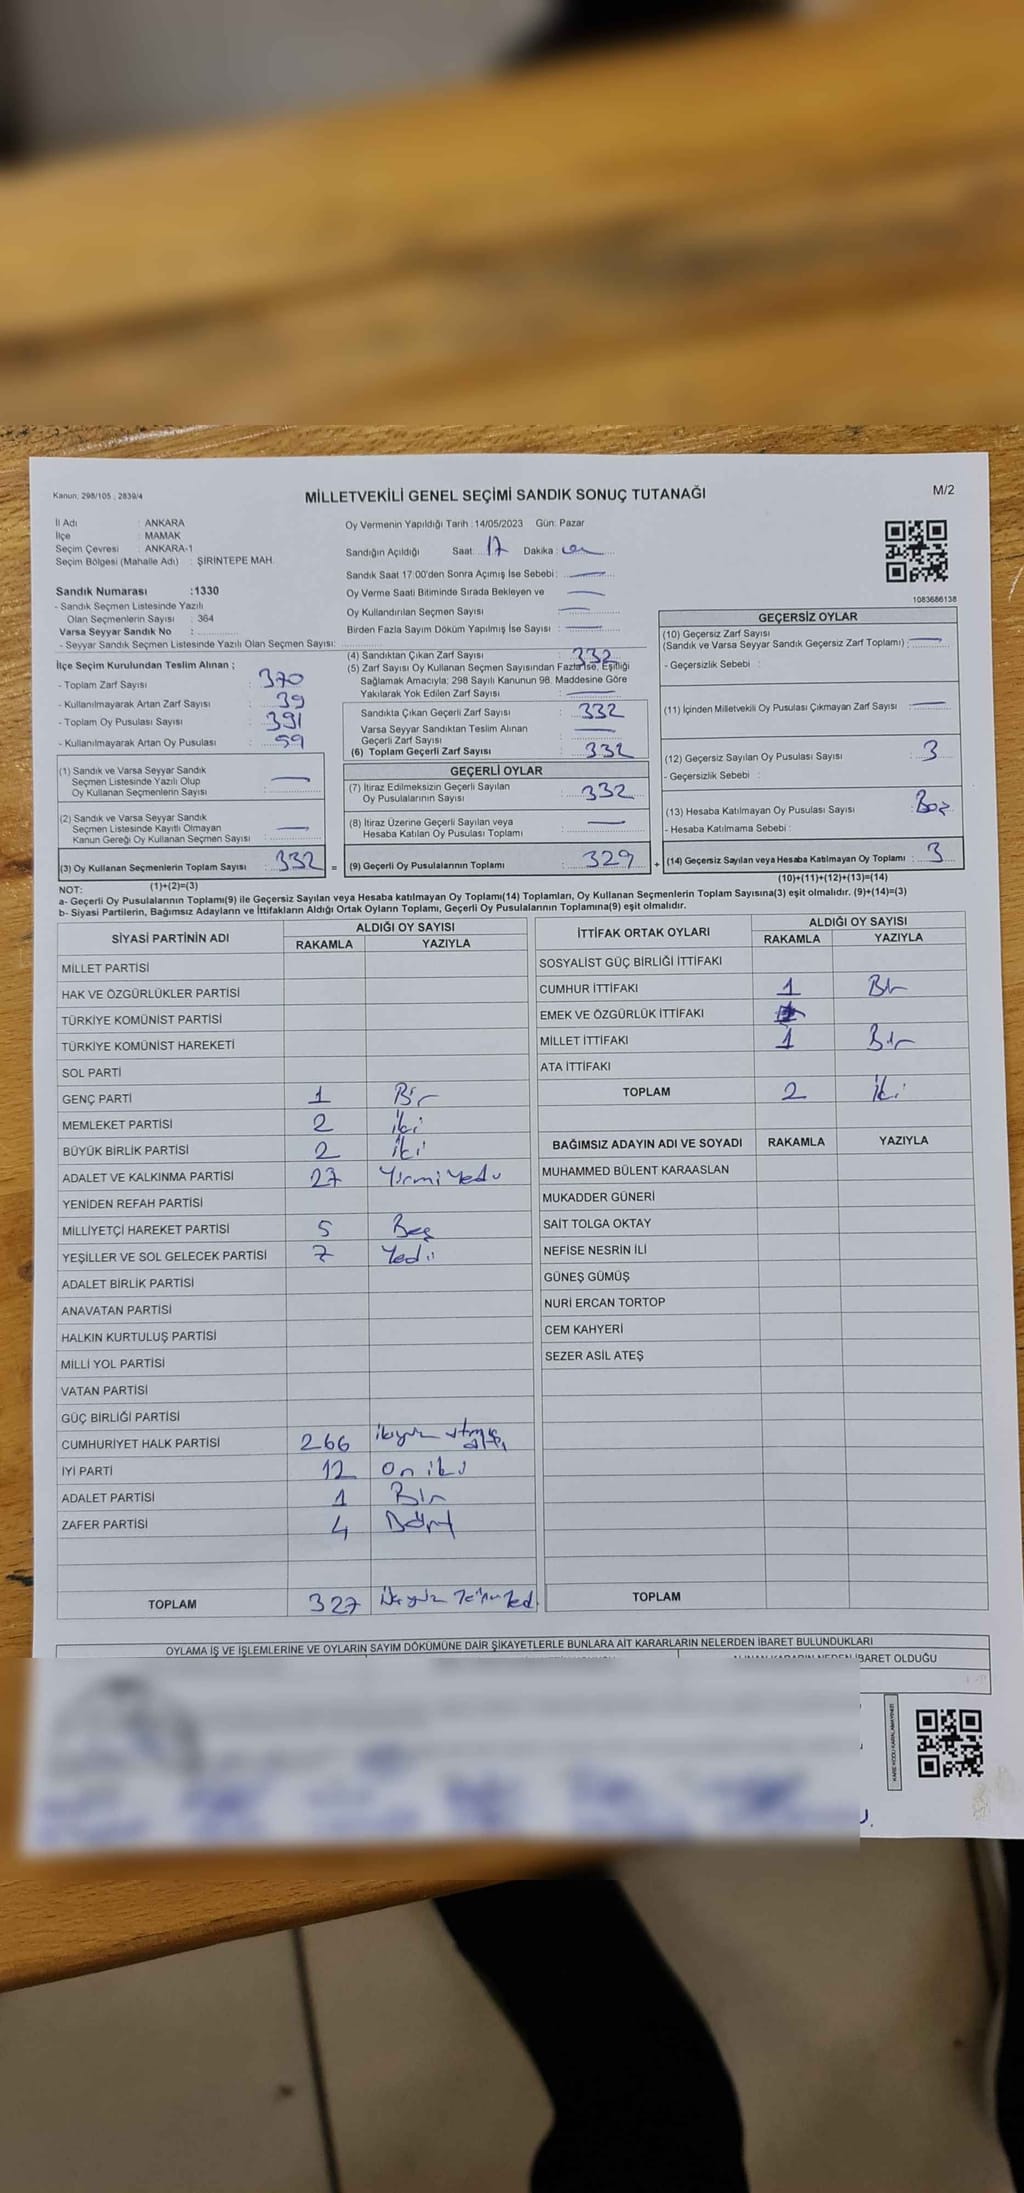 Kanun; 298/105 , 2839/4
MİLLETVEKİLİ GENEL SEÇİMİ SANDIK SONUÇ TUTANAĞI
M/2
İl Adı : ANKARA
İlçe : MAMAK
Seçim Çevresi : ANKARA-1
Seçim Bölgesi (Mahalle Adı) : ŞİRİNTEPE MAH.
Oy Vermenin Yapıldığı Tarih : 14/05/2023 Gün: Pazar
Sandığın Açıldığı Saat: 17 Dakika :
Sandık Saat 17:00'den Sonra Açımış İse Sebebi :
Oy Verme Saati Bitiminde Sırada Bekleyen ve
Oy Kullandırılan Seçmen Sayısı
Birden Fazla Sayım Döküm Yapılmış İse Sayısı :
1083686138
Sandık Numarası :1330
- Sandık Seçmen Listesinde Yazılı
Olan Seçmenlerin Sayısı : 364
Varsa Seyyar Sandık No :
- Seyyar Sandık Seçmen Listesinde Yazılı Olan Seçmen Sayısı:
İlçe Seçim Kurulundan Teslim Alınan ;
- Toplam Zarf Sayısı : 370
- Kullanılmayarak Artan Zarf Sayısı : 39
- Toplam Oy Pusulası Sayısı : 391
- Kullanılmayarak Artan Oy Pusulası : 59
(1) Sandık ve Varsa Seyyar Sandık
Seçmen Listesinde Yazılı Olup
Oy Kullanan Seçmenlerin Sayısı
(2) Sandık ve Varsa Seyyar Sandık
Seçmen Listesinde Kayıtlı Olmayan
Kanun Gereği Oy Kullanan Seçmen Sayısı :
(3) Oy Kullanan Seçmenlerin Toplam Sayısı : 332 =
(4) Sandıktan Çıkan Zarf Sayısı : 332
(5) Zarf Sayısı Oy Kullanan Seçmen Sayısından Fazla İse, Eşitliği
Sağlamak Amacıyla; 298 Sayılı Kanunun 98. Maddesine Göre
Yakılarak Yok Edilen Zarf Sayısı
Sandıkta Çıkan Geçerli Zarf Sayısı : 332
Varsa Seyyar Sandıktan Teslim Alınan
Geçerli Zarf Sayısı
(6) Toplam Geçerli Zarf Sayısı : 332
GEÇERLİ OYLAR
(7) İtiraz Edilmeksizin Geçerli Sayılan
Oy Pusulalarının Sayısı : 332
(8) İtiraz Üzerine Geçerli Sayılan veya
Hesaba Katılan Oy Pusulası Toplamı
(9) Geçerli Oy Pusulalarının Toplamı : 329 +
GEÇERSİZ OYLAR
(10) Geçersiz Zarf Sayısı
(Sandık ve Varsa Seyyar Sandık Geçersiz Zarf Toplamı) :
- Geçersizlik Sebebi :
(11) İçinden Milletvekili Oy Pusulası Çıkmayan Zarf Sayısı :
(12) Geçersiz Sayılan Oy Pusulası Sayısı : 3
- Geçersizlik Sebebi :
(13) Hesaba Katılmayan Oy Pusulası Sayısı : Boş
- Hesaba Katılmama Sebebi :
(14) Geçersiz Sayılan veya Hesaba Katılmayan Oy Toplamı : 3
NOT: (1)+(2)=(3)
(10)+(11)+(12)+(13)=(14)
a- Geçerli Oy Pusulalarının Toplamı(9) ile Geçersiz Sayılan veya Hesaba katılmayan Oy Toplamı(14) Toplamları, Oy Kullanan Seçmenlerin Toplam Sayısına(3) eşit olmalıdır. (9)+(14)=(3)
b- Siyasi Partilerin, Bağımsız Adayların ve İttifakların Aldığı Ortak Oyların Toplamı, Geçerli Oy Pusulalarının Toplamına(9) eşit olmalıdır.
SİYASİ PARTİNİN ADI
ALDIĞI OY SAYISI
RAKAMLA YAZIYLA
MİLLET PARTİSİ
HAK VE ÖZGÜRLÜKLER PARTİSİ
TÜRKİYE KOMÜNİST PARTİSİ
TÜRKİYE KOMÜNİST HAREKETİ
SOL PARTİ
GENÇ PARTİ 1 Bir
MEMLEKET PARTİSİ 2 iki
BÜYÜK BİRLİK PARTİSİ 2 iki
ADALET VE KALKINMA PARTİSİ 27 Yirmi yedi
YENİDEN REFAH PARTİSİ
MİLLİYETÇİ HAREKET PARTİSİ 5 Beş
YEŞİLLER VE SOL GELECEK PARTİSİ 7 Yedi
ADALET BİRLİK PARTİSİ
ANAVATAN PARTİSİ
HALKIN KURTULUŞ PARTİSİ
MİLLİ YOL PARTİSİ
VATAN PARTİSİ
GÜÇ BİRLİĞİ PARTİSİ
CUMHURİYET HALK PARTİSİ 266 ikiyüz atmış altı
İYİ PARTİ 12 on iki
ADALET PARTİSİ 1 Bir
ZAFER PARTİSİ 4 Dört
TOPLAM 327
İTTİFAK ORTAK OYLARI
ALDIĞI OY SAYISI
RAKAMLA YAZIYLA
SOSYALİST GÜÇ BİRLİĞİ İTTİFAKI
CUMHUR İTTİFAKI 1 Bir
EMEK VE ÖZGÜRLÜK İTTİFAKI
MİLLET İTTİFAKI 1 Bir
ATA İTTİFAKI
TOPLAM 2 iki
BAĞIMSIZ ADAYIN ADI VE SOYADI RAKAMLA YAZIYLA
MUHAMMED BÜLENT KARAASLAN
MUKADDER GÜNERİ
SAİT TOLGA OKTAY
NEFİSE NESRİN İLİ
GÜNEŞ GÜMÜŞ
NURİ ERCAN TORTOP
CEM KAHYERİ
SEZER ASİL ATEŞ
TOPLAM
OYLAMA İŞ VE İŞLEMLERİNE VE OYLARIN SAYIM DÖKÜMÜNE DAİR ŞİKAYETLERLE BUNLARA AİT KARARLARIN NELERDEN İBARET BULUNDUKLARI
ALINAN KARARIN NEDEN İBARET OLDUĞU